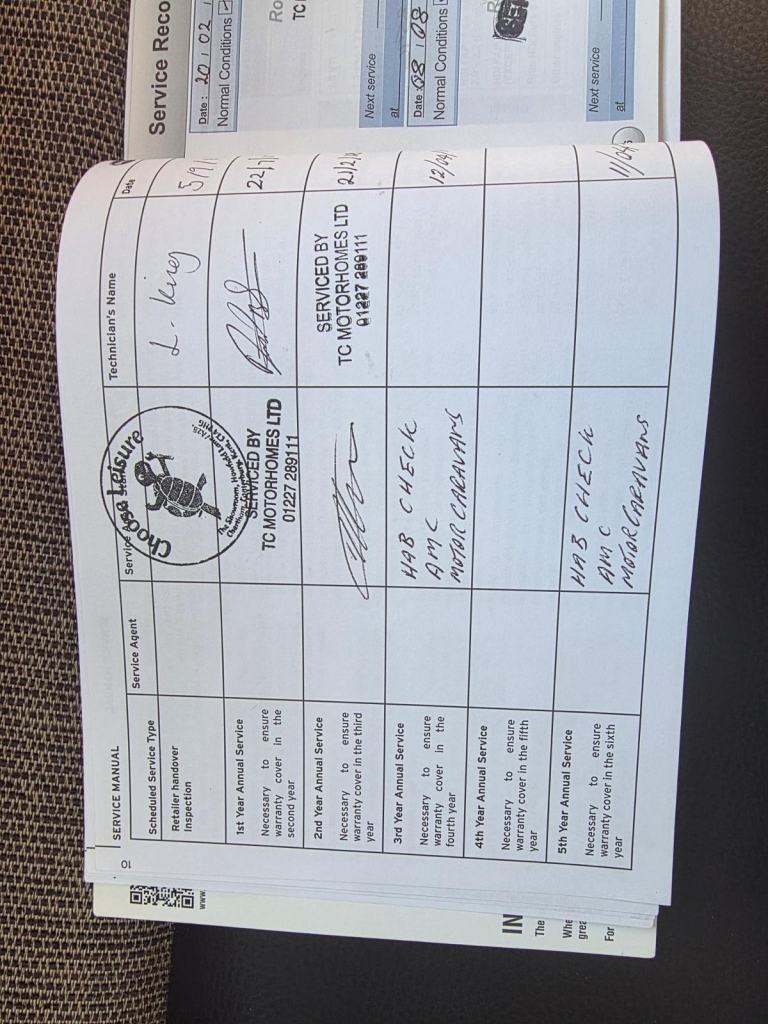 SERVICE MANUAL
Scheduled Service Type
Service Agent
Technician's Name
Date
Retailer handover
Inspection
Choose Leisure
L. King
1st Year Annual Service
Necessary to ensure
warranty cover in the
second year
SERVICED BY
TC MOTORHOMES LTD
01227 289111
2nd Year Annual Service
Necessary to ensure
warranty cover in the third
year
SERVICED BY
TC MOTORHOMES LTD
01227 289111
3rd Year Annual Service
Necessary to ensure
warranty cover in the
fourth year
HAB CHECK
AMC
MOTOR CARAVANS
4th Year Annual Service
Necessary to ensure
warranty cover in the fifth
year
5th Year Annual Service
Necessary to ensure
warranty cover in the sixth
year
HAB CHECK
AMC
MOTOR CARAVANS
10
Service Reco
Date: 20 02
Normal Conditions
Ro
TC
Next service
at
Date 08 08
Normal Conditions
Next service
at
www.
IN
The
Whe
grea
For